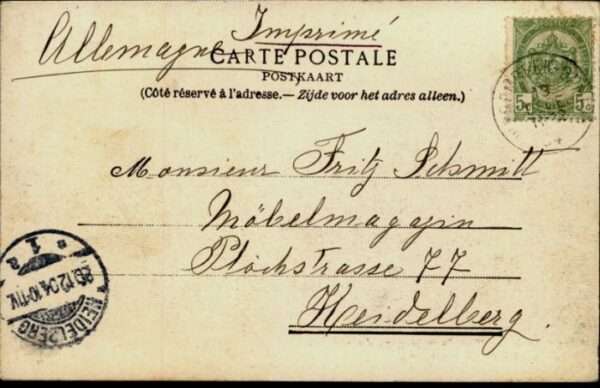 Imprimé
Allemagne
CARTE POSTALE
POSTKAART
(Côté réservé à l'adresse.— Zijde voor het adres alleen.)
5c 5c
Monsieur Fritz Schmitt
Möbelmagazin
Plöckstrasse 77
Heidelberg.
HEIDELBERG
29.12.04.10-11V.
* 1 a